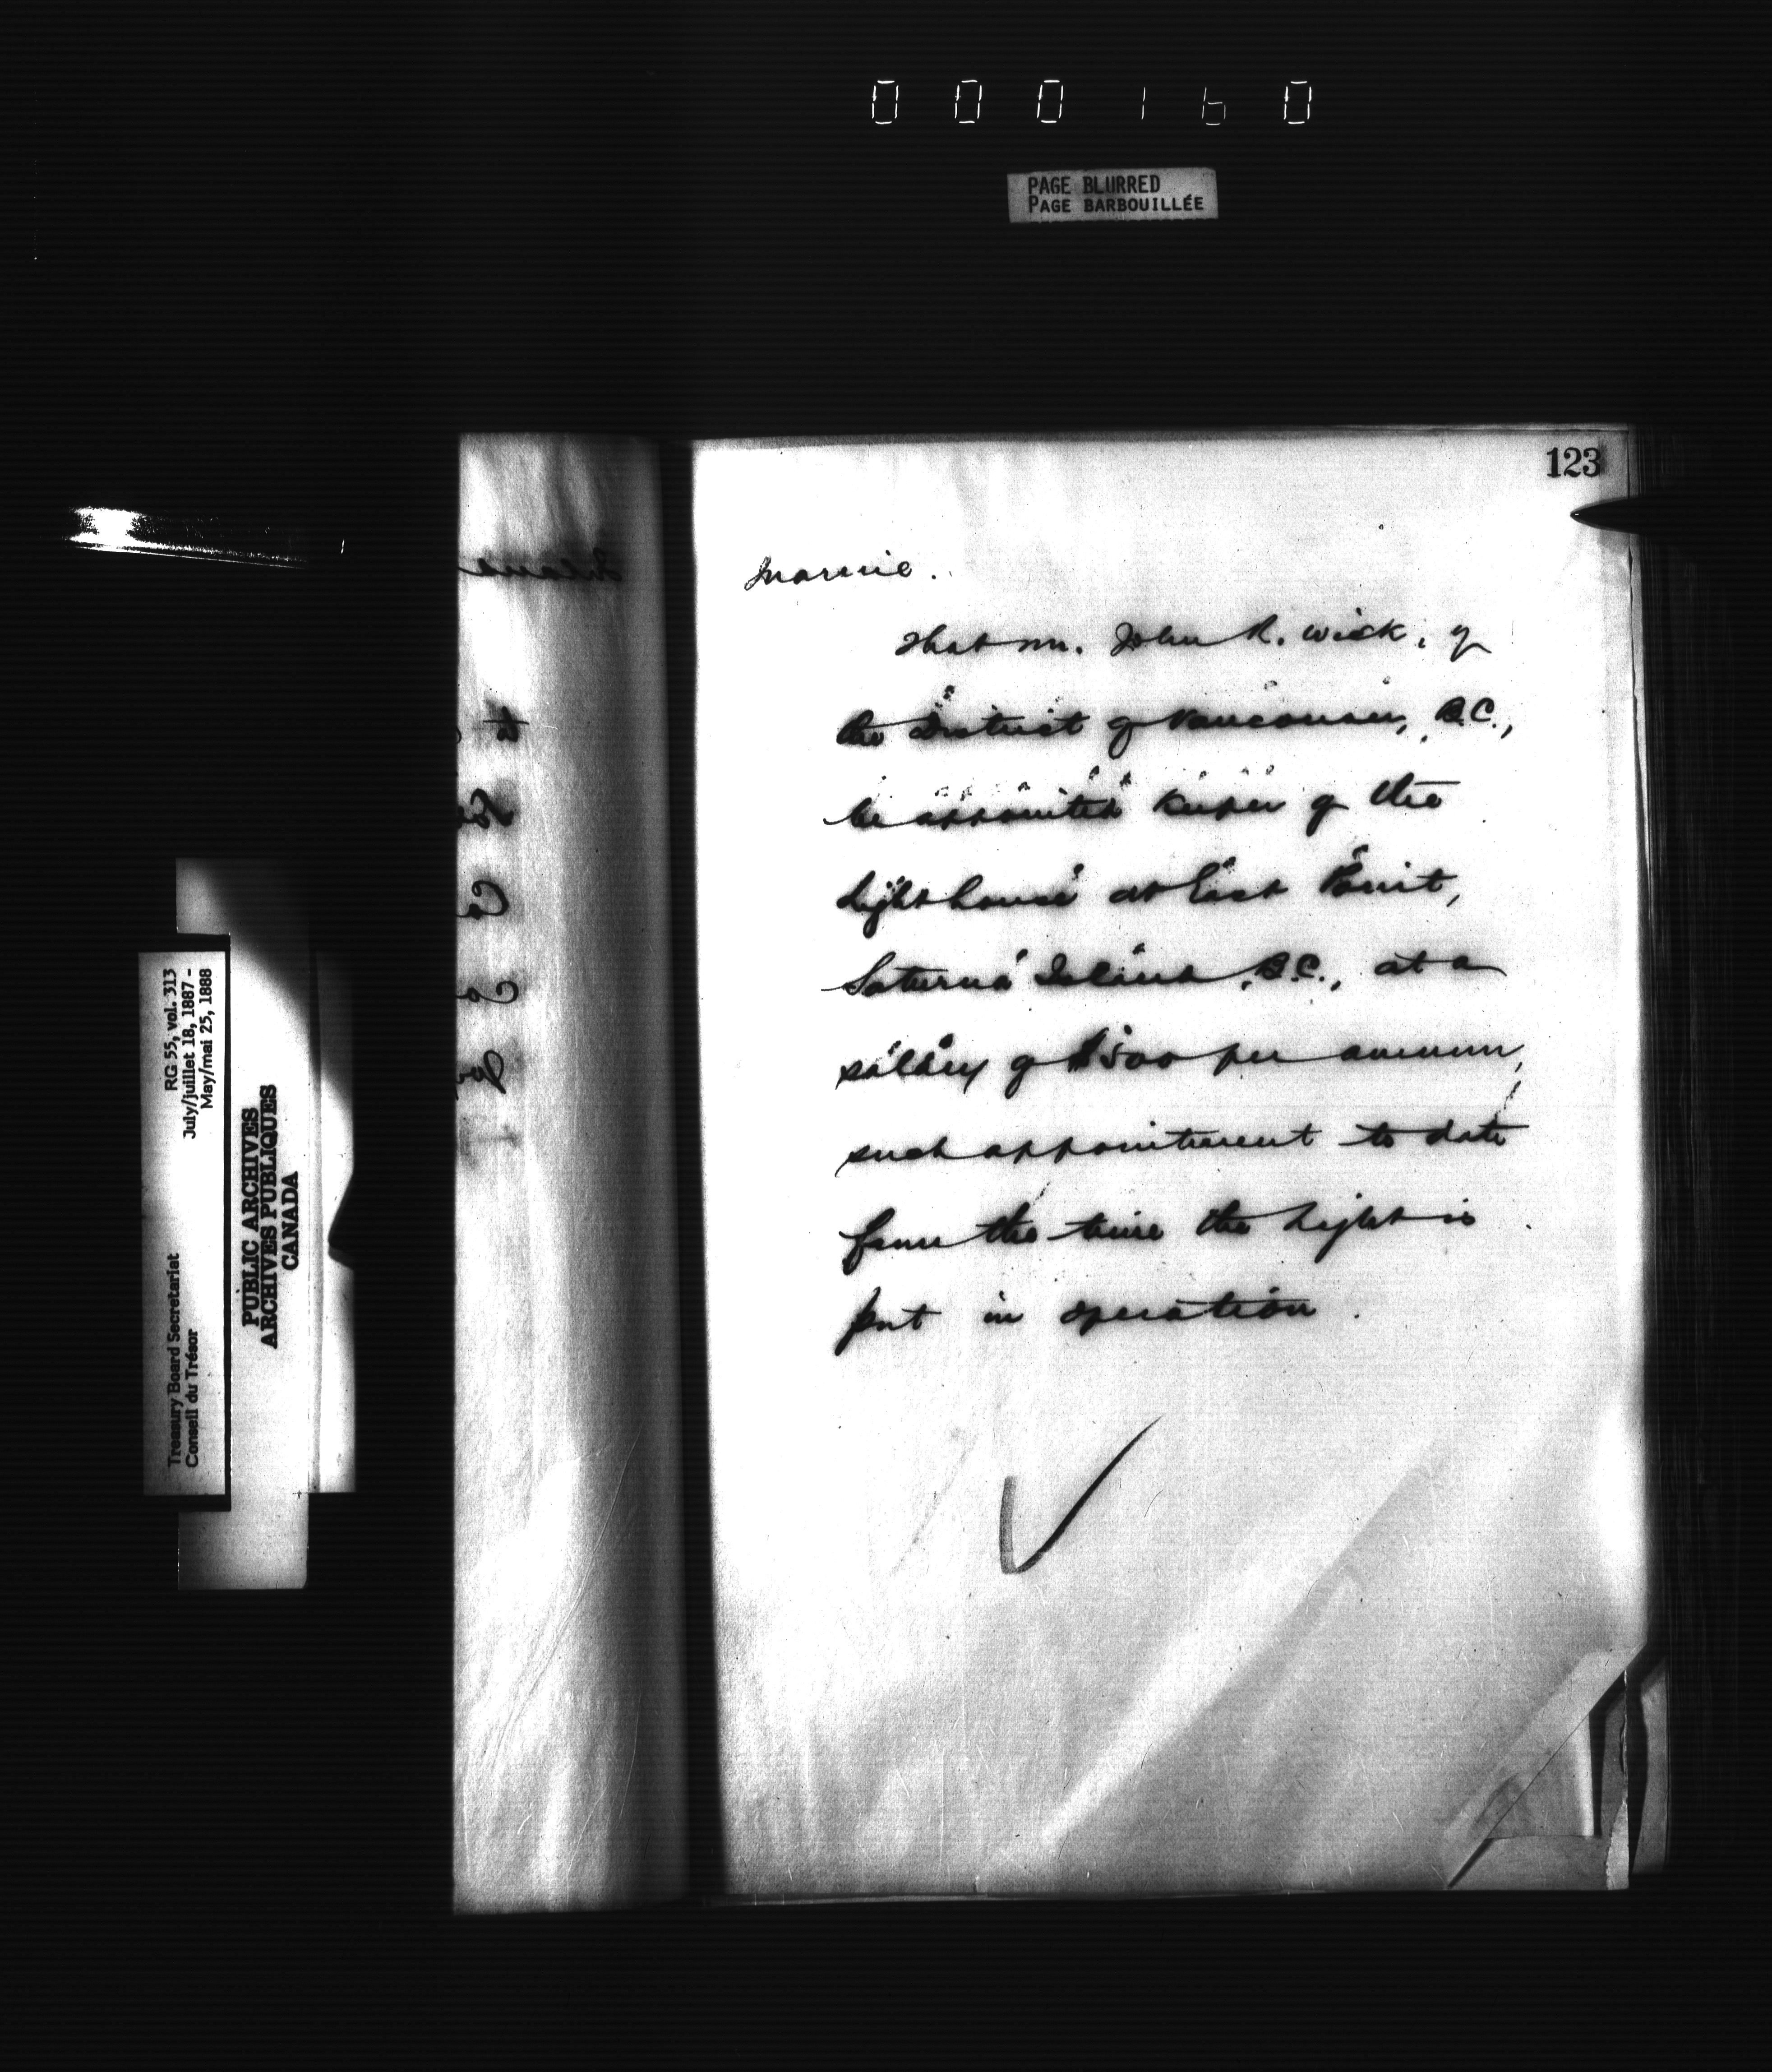 000160
PAGE BLURRED
PAGE BARBOUILLÉE
123
Marine.
That Mr. John R. Wick, of
the District of Vancouver, B.C.,
be appointed Keeper of the
lighthouse at East Point,
Saturna Island, B.C., at a
salary of $500 per annum,
such appointment to date
from the time the light is
put in operation.
RG 55, vol. 313
July/juillet 18, 1887 -
May/mai 25, 1888
Treasury Board Secretariat
Conseil du Trésor
PUBLIC ARCHIVES
ARCHIVES PUBLIQUES
CANADA